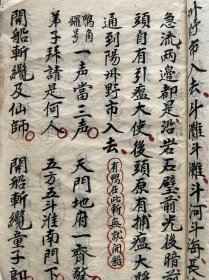 外州野市人去斗灘斗灘斗河斗海長
急流两邊都是沿岩石壁前光後暗
頭自有引瘟大使後頭原有捕瘟大將
通到陽州野市入去
有鴨在此斬無就開船
鳴角
鑼号
一声當三声
天門地府一齊
弟子拜請是何人
五方五斗淮南門下
開船斬纜及仙師
開船斬纜童子郎